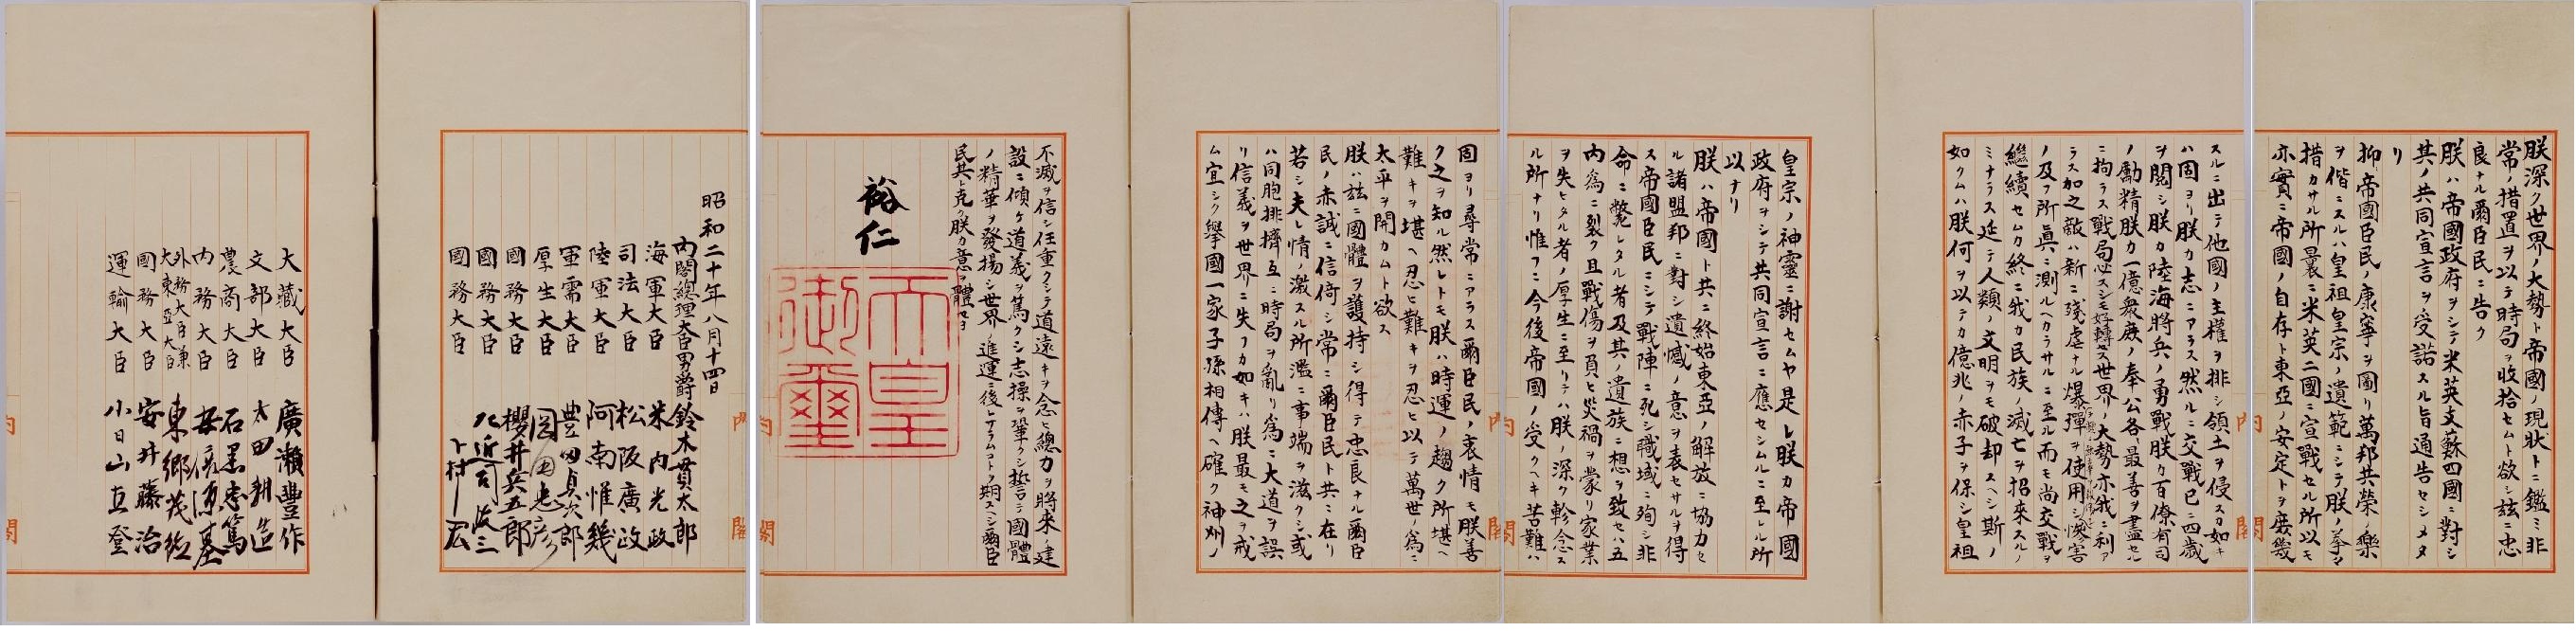 朕深ク世界ノ大勢ト帝國ノ現狀トニ鑑ミ非
常ノ措置ヲ以テ時局ヲ收拾セムト欲シ茲ニ忠
良ナル爾臣民ニ告ク
朕ハ帝國政府ヲシテ米英支蘇四國ニ對シ
其ノ共同宣言ヲ受諾スル旨通告セシメタ
リ
抑〻帝國臣民ノ康寧ヲ圖リ萬邦共榮ノ樂
ヲ偕ニスルハ皇祖皇宗ノ遺範ニシテ朕ノ拳〻
措カサル所曩ニ米英二國ニ宣戰セル所以モ
亦實ニ帝國ノ自存ト東亞ノ安定トヲ庶幾
スルニ出テ他國ノ主權ヲ排シ領土ヲ侵スカ如キ
ハ固ヨリ朕カ志ニアラス然ルニ交戰已ニ四歲
ヲ閱シ朕カ陸海將兵ノ勇戰朕カ百僚有司
ノ勵精朕カ一億衆庶ノ奉公各〻最善ヲ盡セル
ニ拘ラス戰局必スシモ好轉セス世界ノ大勢亦我ニ利ア
ラス加之敵ハ新ニ殘虐ナル爆彈ヲ使用シテ頻ニ無辜ヲ殺傷シ慘害
ノ及フ所眞ニ測ルヘカラサルニ至ル而モ尚交戰ヲ
繼續セムカ終ニ我カ民族ノ滅亡ヲ招來スルノ
ミナラス延テ人類ノ文明ヲモ破却スヘシ斯ノ
如クムハ朕何ヲ以テカ億兆ノ赤子ヲ保シ皇祖
皇宗ノ神靈ニ謝セムヤ是レ朕カ帝國
政府ヲシテ共同宣言ニ應セシムルニ至レル所
以ナリ
朕ハ帝國ト共ニ終始東亞ノ解放ニ協力セ
ル諸盟邦ニ對シ遺憾ノ意ヲ表セサルヲ得
ス帝國臣民ニシテ戰陣ニ死シ職域ニ殉シ非
命ニ斃レタル者及其ノ遺族ニ想ヲ致セハ五
內爲ニ裂ク且戰傷ヲ負ヒ災禍ヲ蒙リ家業
ヲ失ヒタル者ノ厚生ニ至リテハ朕ノ深ク軫念ス
ル所ナリ惟フニ今後帝國ノ受クヘキ苦難ハ
固ヨリ尋常ニアラス爾臣民ノ衷情モ朕善
ク之ヲ知ル然レトモ朕ハ時運ノ趨ク所堪ヘ
難キヲ堪ヘ忍ヒ難キヲ忍ヒ以テ萬世ノ爲ニ
太平ヲ開カムト欲ス
朕ハ茲ニ國體ヲ護持シ得テ忠良ナル爾臣
民ノ赤誠ニ信倚シ常ニ爾臣民ト共ニ在リ
若シ夫レ情ノ激スル所濫ニ事端ヲ滋クシ或
ハ同胞排擠互ニ時局ヲ亂リ爲ニ大道ヲ誤
リ信義ヲ世界ニ失フカ如キハ朕最モ之ヲ戒
ム宜シク擧國一家子孫相傳ヘ確ク神州ノ
不滅ヲ信シ任重クシテ道遠キヲ念ヒ總力ヲ將來ノ建
設ニ傾ケ道義ヲ篤クシ志操ヲ鞏クシ誓テ國體
ノ精華ヲ發揚シ世界ノ進運ニ後レサラムコトヲ期スヘシ爾臣
民其レ克ク朕カ意ヲ體セヨ
裕仁
天皇
御璽
昭和二十年八月十四日
內閣總理大臣男爵 鈴木貫太郎
海軍大臣 米內光政
司法大臣 松阪廣政
陸軍大臣 阿南惟幾
軍需大臣 豊田貞次郎
厚生大臣 岡田忠彦
國務大臣 櫻井兵五郎
國務大臣 左近司政三
國務大臣 下村宏
大藏大臣 廣瀨豐作
文部大臣 太田耕造
農商大臣 石黑忠篤
內務大臣 安倍源基
外務大臣兼
大東亞大臣 東鄕茂德
國務大臣 安井藤治
運輸大臣 小日山直登
內閣
內閣
內閣
內閣
內閣
內閣